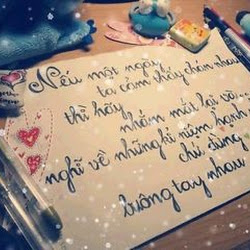 Nếu một ngày
ta cảm thấy chán nhau
thì hãy
nhắm mắt lại và...
nghĩ về những kỉ niệm hạnh
chứ đừng
buông tay nhau